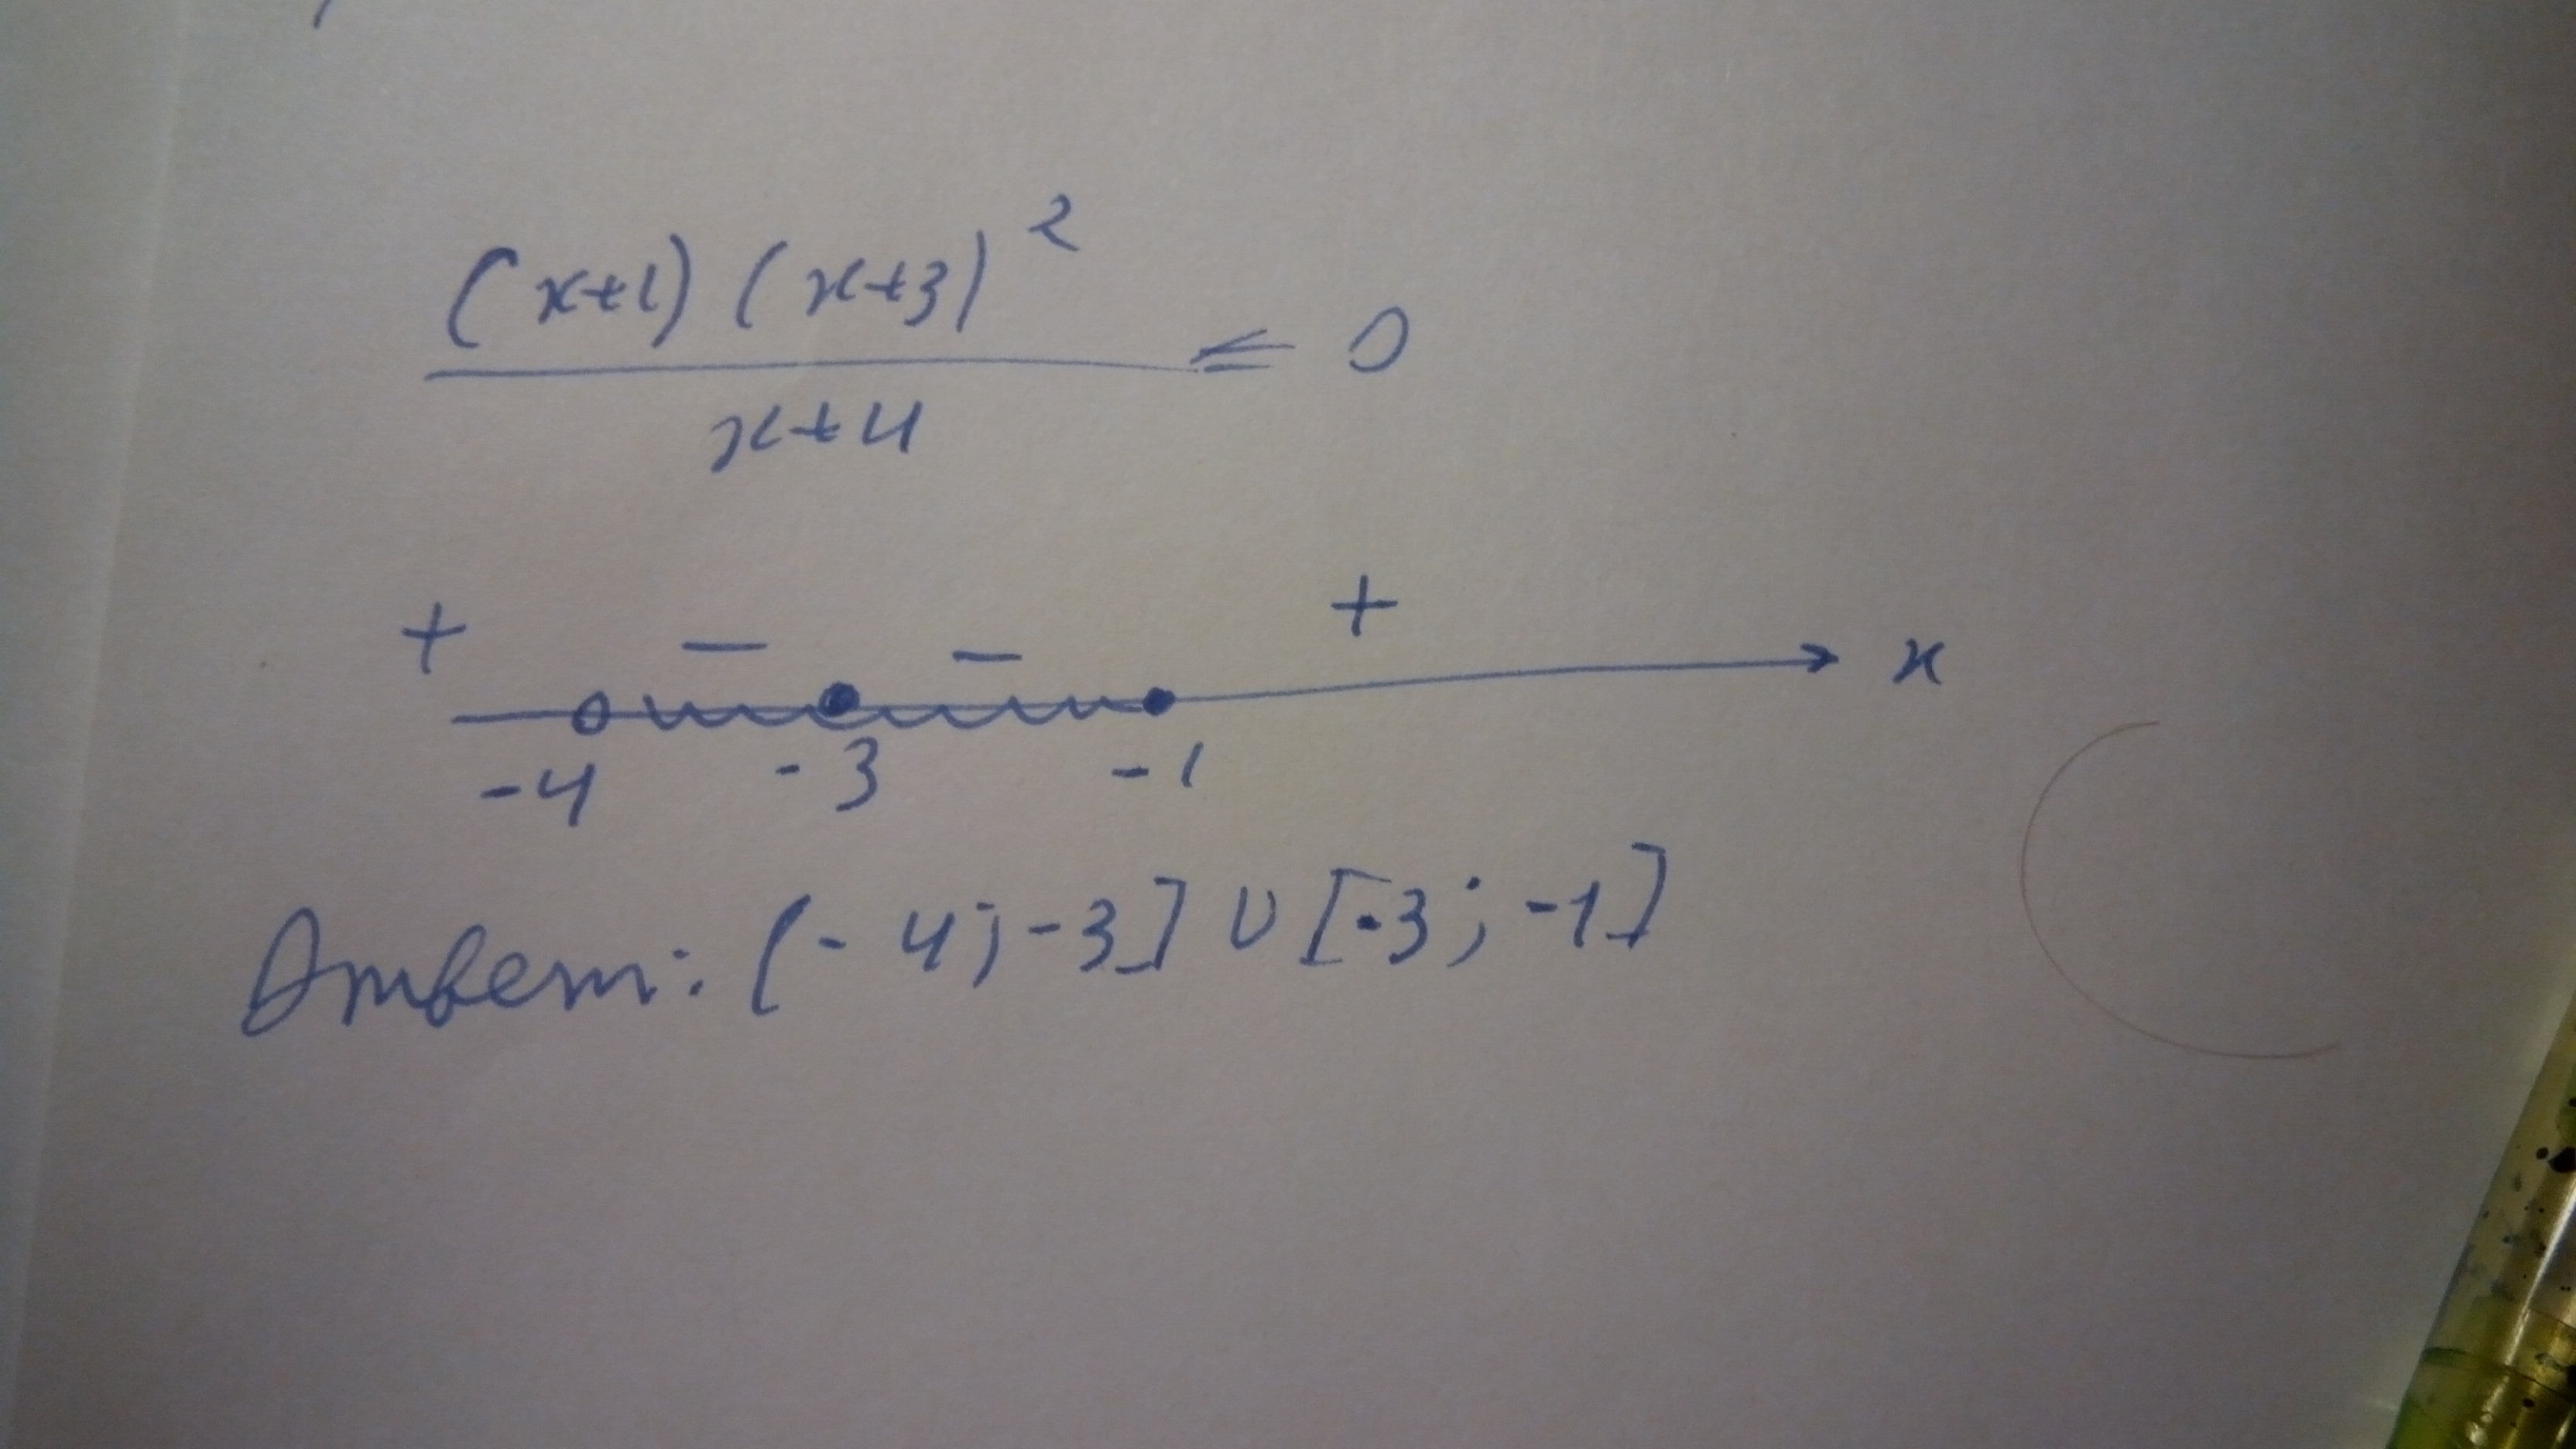 (x+1)(x+3)² ≤ 0
x+4
+ − − +
-4 -3 -1 x
Ответ: (-4;-3]∪[-3;-1]